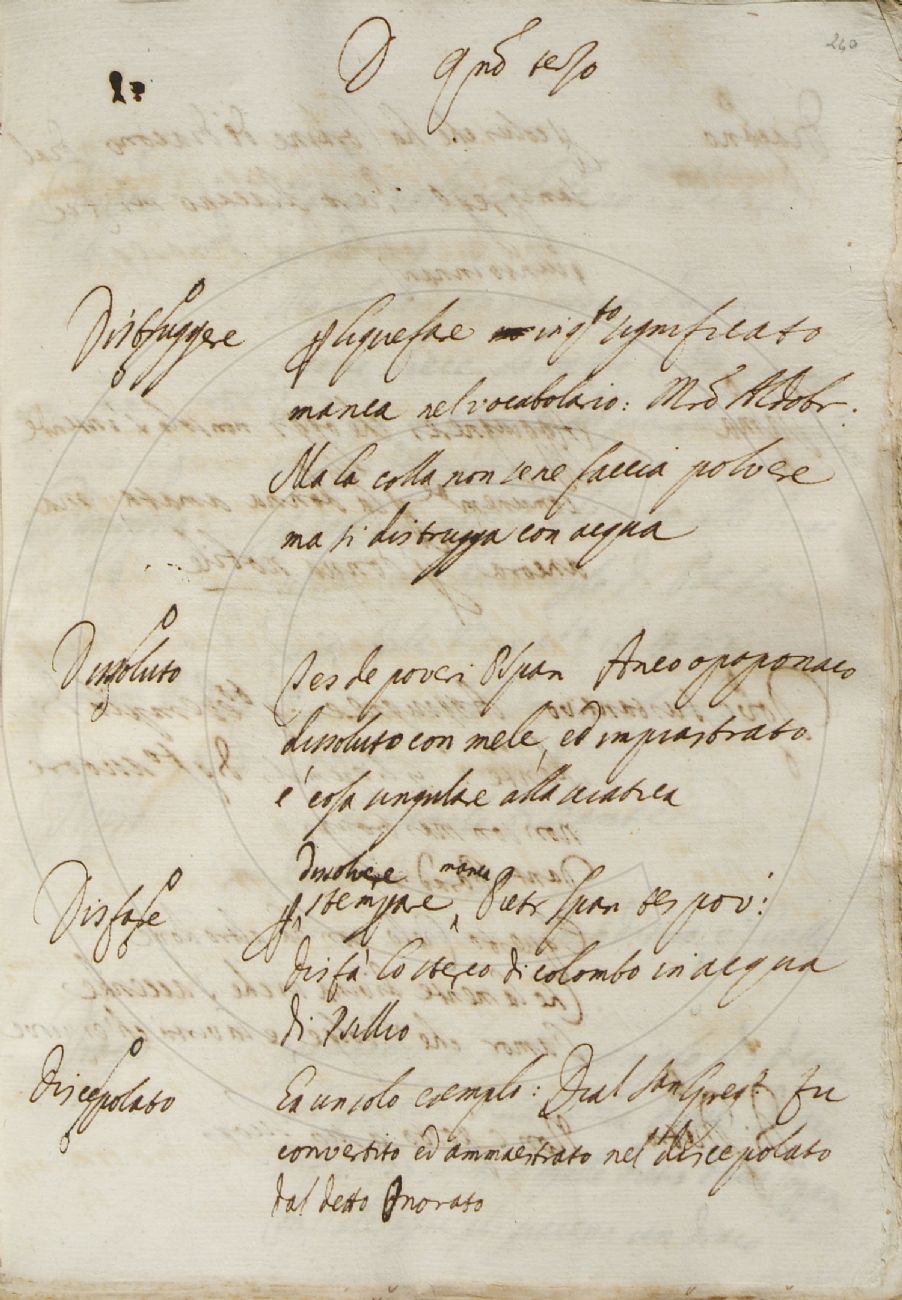 D qno terzo
260
Distruggere
p liquefare in qto significato
manca nel vocabolario: Mro Aldobr.
Ma la colla non se ne faccia polvere
ma si distrugga con acqua
Dissoluto
Tes de poveri PSpan Anco opoponaco
dissoluto con mele, ed impiastrato
è cosa singulare alla sciatica
Disfare
dissolvere manca
p stempare Pietr Span tes pov:
disfà lo sterco di colombo in acqua
di Psillio
Discepolato
Ha un solo esemplo: Dial San Greg. fu
convertito ed ammaestrato nel discepolato
dal detto Onorato